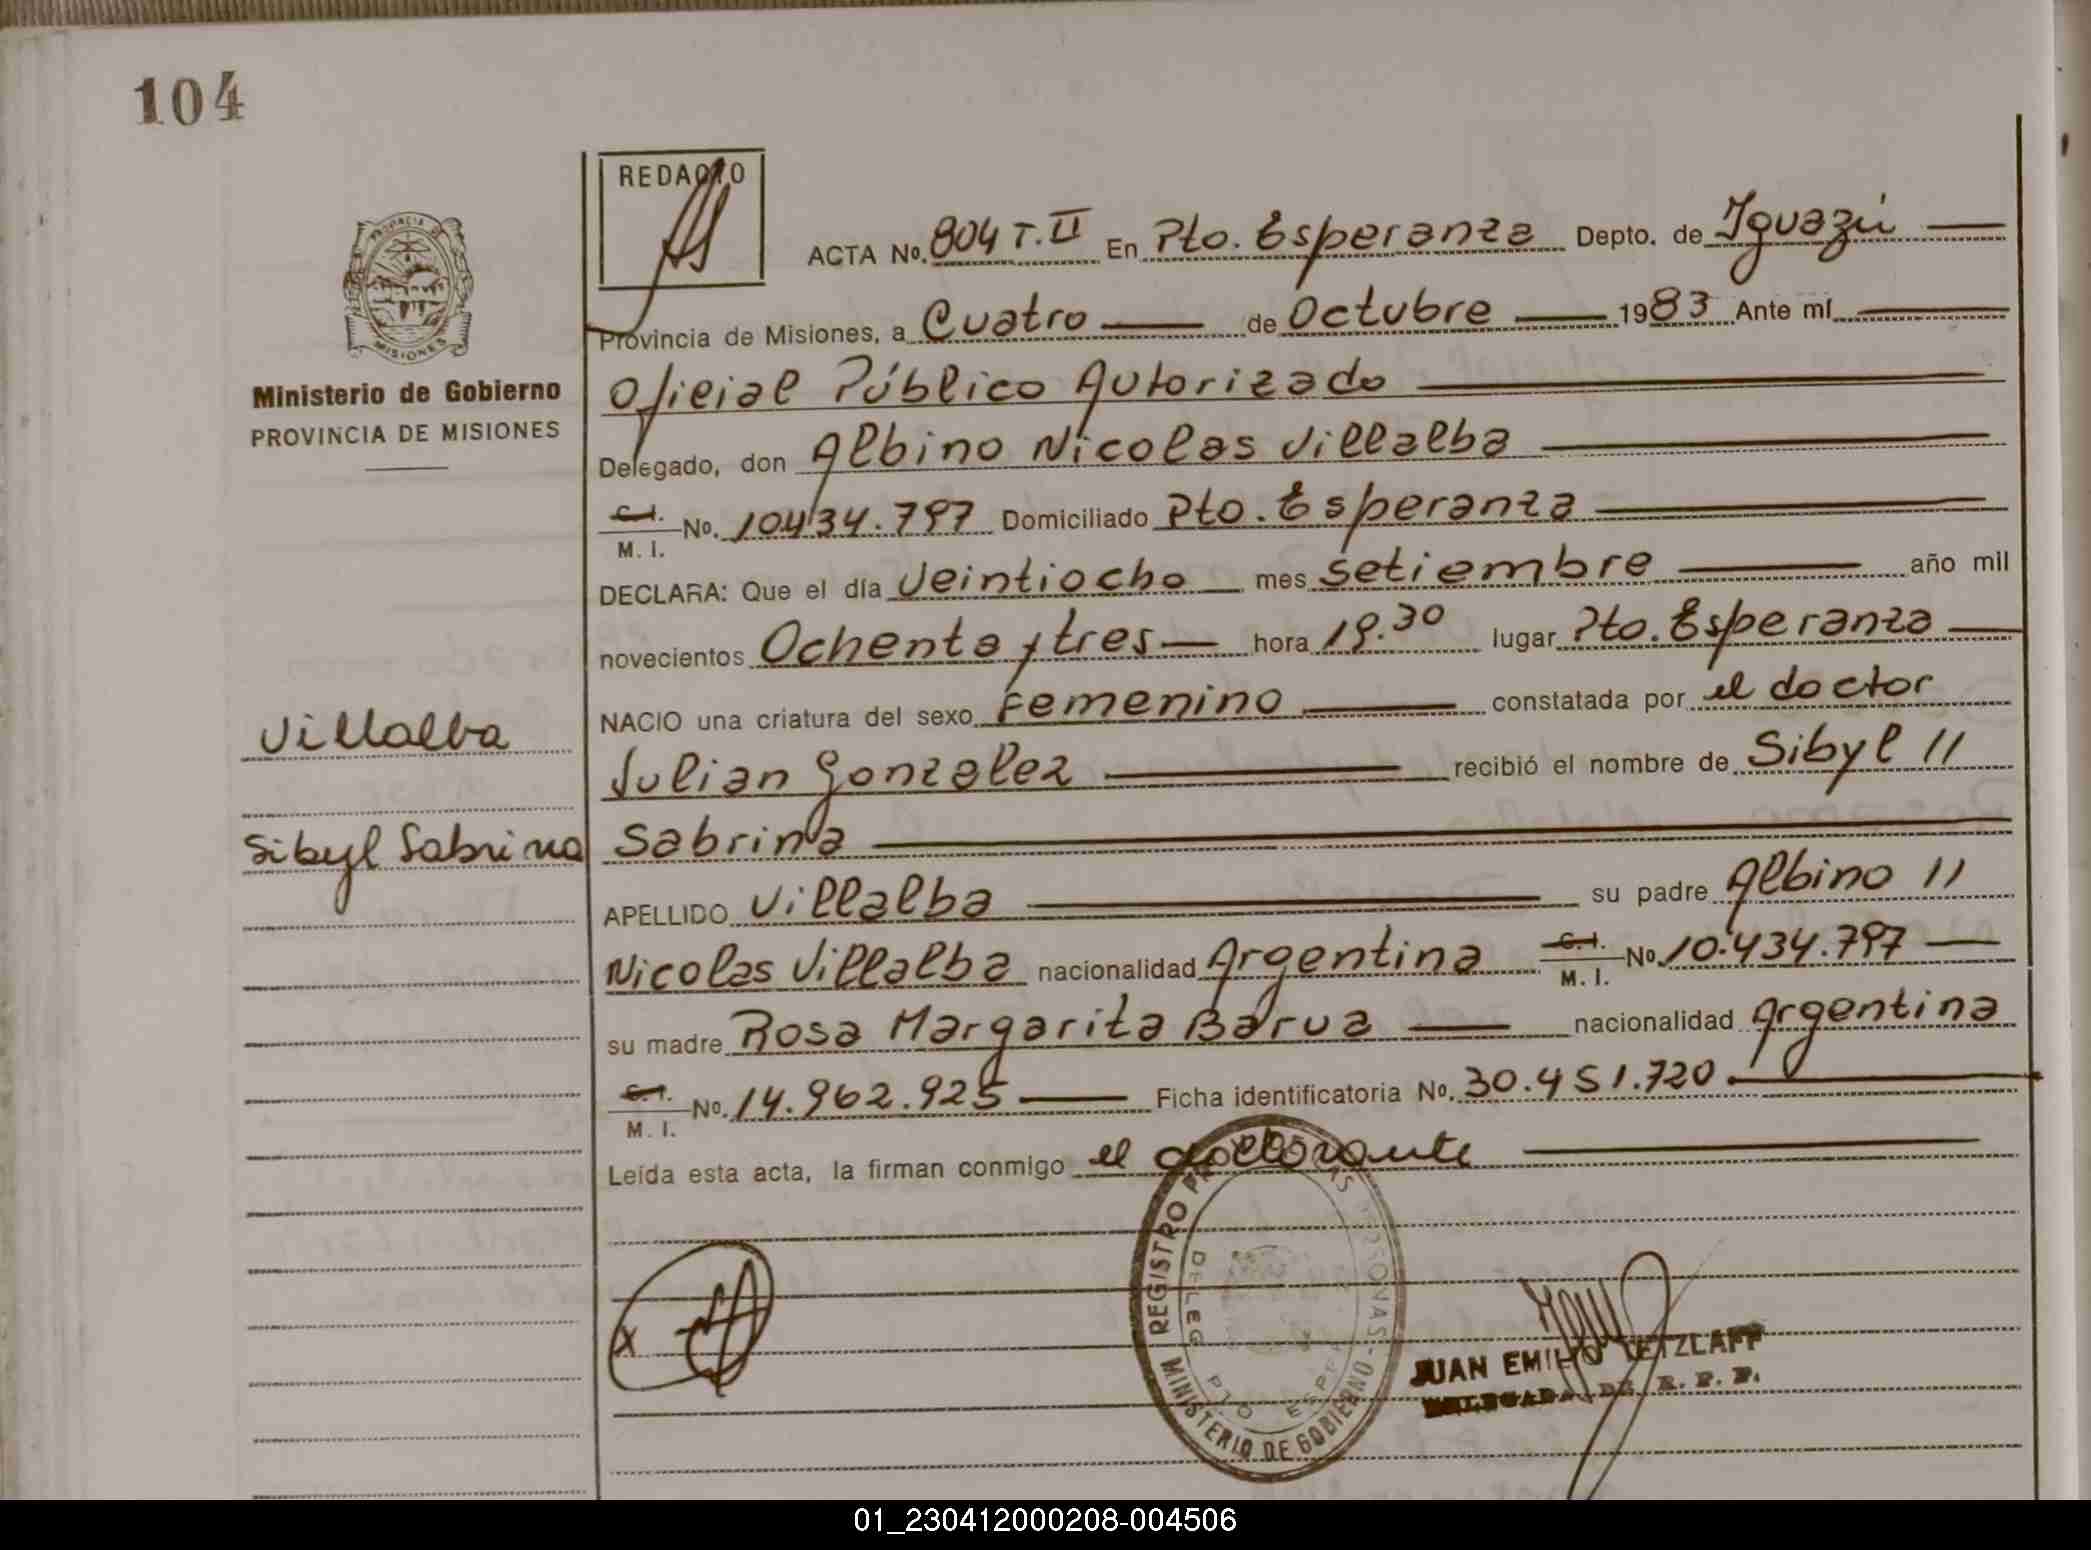 104
REDACTO
ACTA No. 804 T.II En Pto. Esperanza Depto. de Iguazú
Provincia de Misiones, a Cuatro de Octubre 1983 Ante mí
Oficial Público Autorizado
Delegado, don Albino Nicolas Villalba
C.I. M. I. No. 10434.797 Domiciliado Pto. Esperanza
DECLARA: Que el día Veintiocho mes Setiembre año mil
novecientos Ochenta y tres hora 19.30 lugar Pto. Esperanza
NACIO una criatura del sexo Femenino constatada por el doctor
Julian Gonzalez recibió el nombre de Sibyl //
Sabrina
APELLIDO Villalba su padre Albino //
Nicolas Villalba nacionalidad Argentina C.I. M. I. No. 10.434.797
su madre Rosa Margarita Barua nacionalidad Argentina
C.I. M. I. No. 14.962.925 Ficha identificatoria No. 30.451.720
Leída esta acta, la firman conmigo el
PROVINCIA DE MISIONES
Ministerio de Gobierno
PROVINCIA DE MISIONES
Villalba
Sibyl Sabrina
X
REGISTRO PERSONAS - MINISTERIO DE GOBIERNO
DELEG PTO ESPER
JUAN EMILIO TETZLAFF
DELEGADA DE R. P. P.
01_230412000208-004506